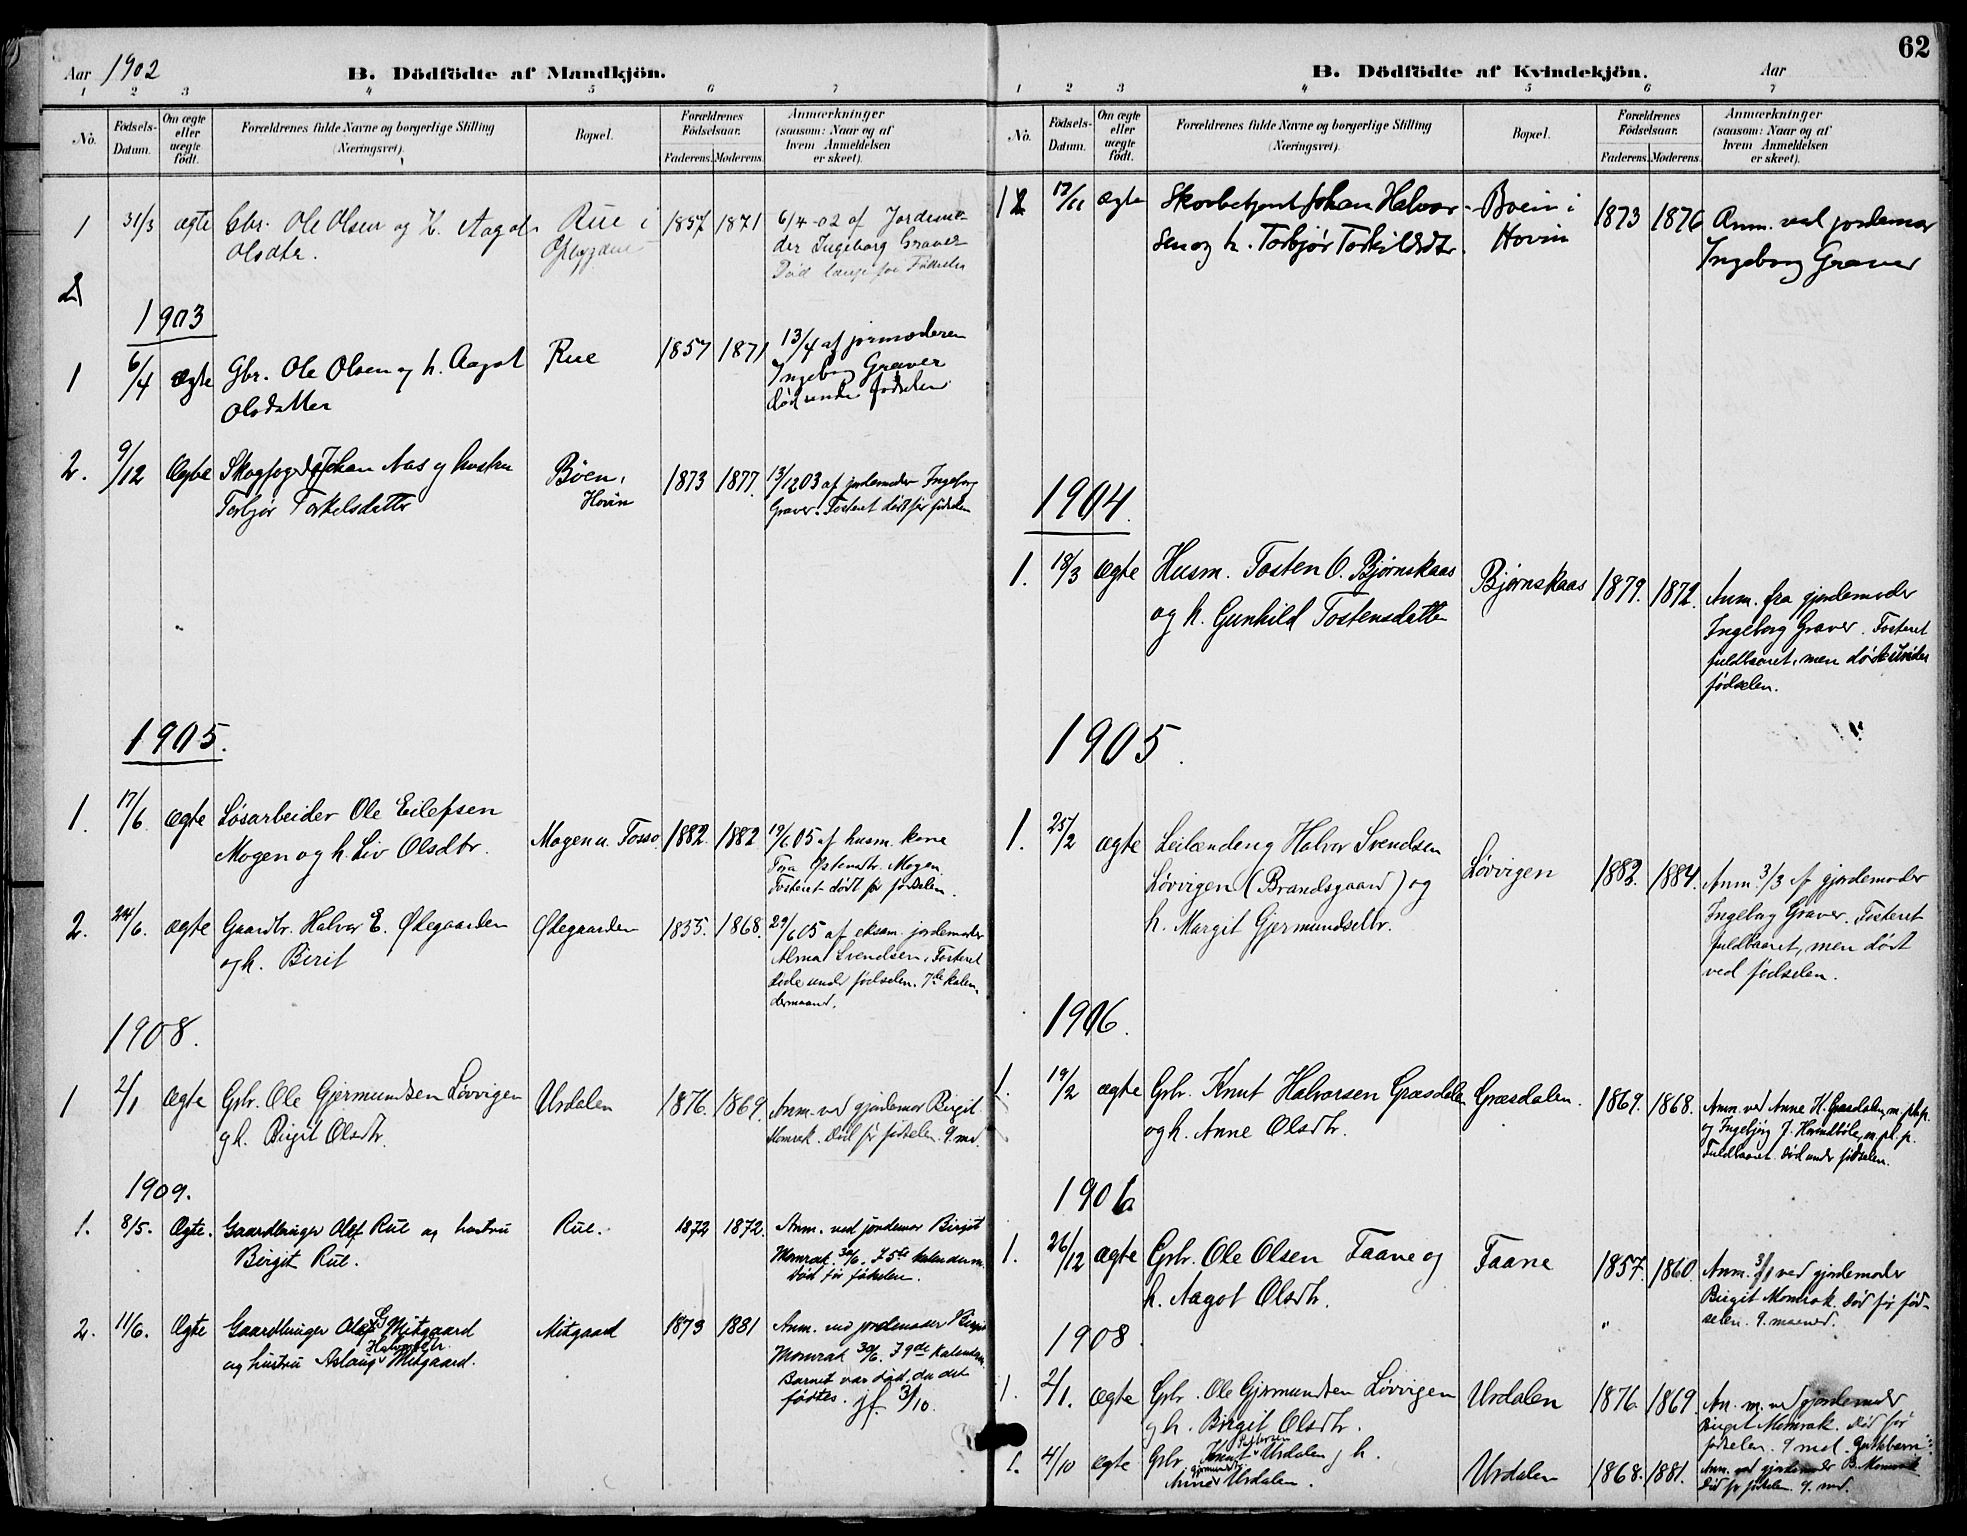 Aar 1902
B. Dödfödte af Mandkjön.
1 2 3 4 5 6 7
No.
Födsels-Datum.
Om ægte eller uægte födt.
Forældrenes fulde Navne og borgerlige Stilling
(Næringsvei).
Bopæl.
Forældrenes Födselsaar.
Faderens. Moderens.
Anmærkninger
(saasom: Naar og af
hvem Anmeldelsen
er skeet).
1 31/3 ægte Gbr. Ole Olsen og H. Aagot Rue i 1857 1871 6/4-02 af Jordemo-
Olsdtr. der Ingeborg Graver
Död længe før Fødselen
2
1903
1 6/4 ægte Gbr. Ole Olsen og h. Aagot Rue 1857 1871 13/4 af jormoderen
Olsdatter Ingeborg Graver
död under fødselen
2. 9/12 Ægte Skogfoged Johan Aas og hustru Bøen, 1873 1877. 13/12 03 af jordemoder Ingeborg
Torbjør Torkelsdatter Hovin Graver. Fosteret dødt før fødselen
1905.
1. 17/6 ægte Løsarbeider Ole Eilefsen Mogen u. Tosso. 1882. 1882 19/6 05 af husm. kone
Mogen og h. Liv Olsdtr. Tora Østensdtr. Mogen.
Fosteret dødt før fødselen.
2. 24/6. ægte Gaardbr. Halvor E. Ødegaarden Ødegaarden 1855. 1868. 29/6 05 af eksam. jordemoder
og h. Birit Alma Svendsen. Fosteret
døde under fødselen. 7de kalen-
dermaaned.
1908.
1 2/1 Ægte Grbr. Ole Gjermundsen Løvvigen Urdalen 1876. 1869. Anm. ved gjordemor Birgit
og h. Birgit Olsdtr. Momrak. Død før fødselen. 9. md.
1909.
1. 8/5. Ægte. Gaardbruger Olaf Rue og hustru Rue. 1872 1872. Anm. ved jordemor Birgit
Birgit Rue. Momrak 30/6. I 5te kalenderm.
Død før fødselen.
2. 11/6. Ægte Gaardbruger Olaf G. Mitgaard Mitgaard 1873 1881 Anm. ved jordemoder Birgit
og hustru Aslaug Halvorsdtr. Mitgaard. Momrak 30/6. I 9de kalenderm.
Barnet var død, da det
fødtes. jf. 3/10.
62
B. Dödfödte af Kvindekjön.
Aar
1 2 3 4 5 6 7
No.
Födsels-Datum.
Om ægte eller uægte födt.
Forældrenes fulde Navne og borgerlige Stilling
(Næringsvei).
Bopæl.
Forældrenes Födselsaar.
Faderens. Moderens.
Anmærkninger
(saasom: Naar og af
hvem Anmeldelsen
er skeet).
1 17/11 ægte Skovbetjent Johan Halvor- Bøen i 1873 1876 Anm. ved jordemor
sen og h. Torbjør Torkildsdtr. Hovin Ingeborg Graver
1904.
1. 18/3 ægte Husm. Tosten O. Bjørnskaas Bjørnskaas 1879. 1872. Anm. fra gjordemoder
og h. Gunhild Tostensdatter Ingeborg Graver. Fosteret
fuldbaaret, men døde under
fødselen.
1905.
1. 25/2 ægte Leilænding Halvor Svendsen Løvvigen 1882. 1884. Anm. 3/3 af gjordemoder
Løvvigen (Brandsgaard) og Ingeborg Graver. Fosteret
h. Margit Gjermundsdtr. fuldbaaret, men dødt
ved fødselen.
1906.
1. 19/2 ægte Grbr. Knut Halvorsen Græsdalen Græsdalen. 1869. 1868. Anm. ved Anne H. Græsdalen, m. p. p.
og h. Anne Olsdtr. og Ingebjørg J. Hvindbøle, m. p. p.
Fuldbaaret. Død under fødselen.
1906
1. 26/12 ægte Grbr. Ole Olsen Faane og Faane 1857. 1860. Anm. 3/1 ved gjordemoder
h. Aagot Olsdtr. Birgit Momrak. Død før fød-
selen. 9. maaned.
1908
1. 2/1. ægte Grbr. Ole Gjermundsen Løvvigen Urdalen 1876. 1869. An. m. ved gjordemoder
og h. Birgit Olsdtr. Birgit Momrak. Død før
fødselen. 9 md.
1. 4/10 ægte Grbr. Knut Pettersen Urdalen og h. Urdalen 1868. 1881. Anm. ved gjordemoder B. Momrak
Anne Gjermundsdtr. Urdalen. Død før fødselen. 9. md.